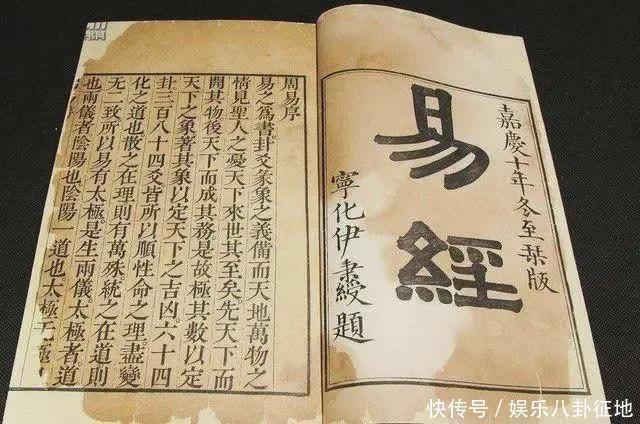 嘉慶十年冬至栞版
易經
寧化伊秉綬題
周易序
易之為書卦爻彖象之義備而天地萬物之
情見聖人之憂天下來世其至矣先天下而
開其物後天下而成其務是故極其數以定
天下之象著其象以定天下之吉凶六十四
卦三百八十四爻皆所以順性命之理盡變
化之道也散之在理則有萬殊統之在道則
无二致所以易有太極是生兩儀太極者道
也兩儀者陰陽也陰陽一道也太極无極
快传号／娱乐八卦征地